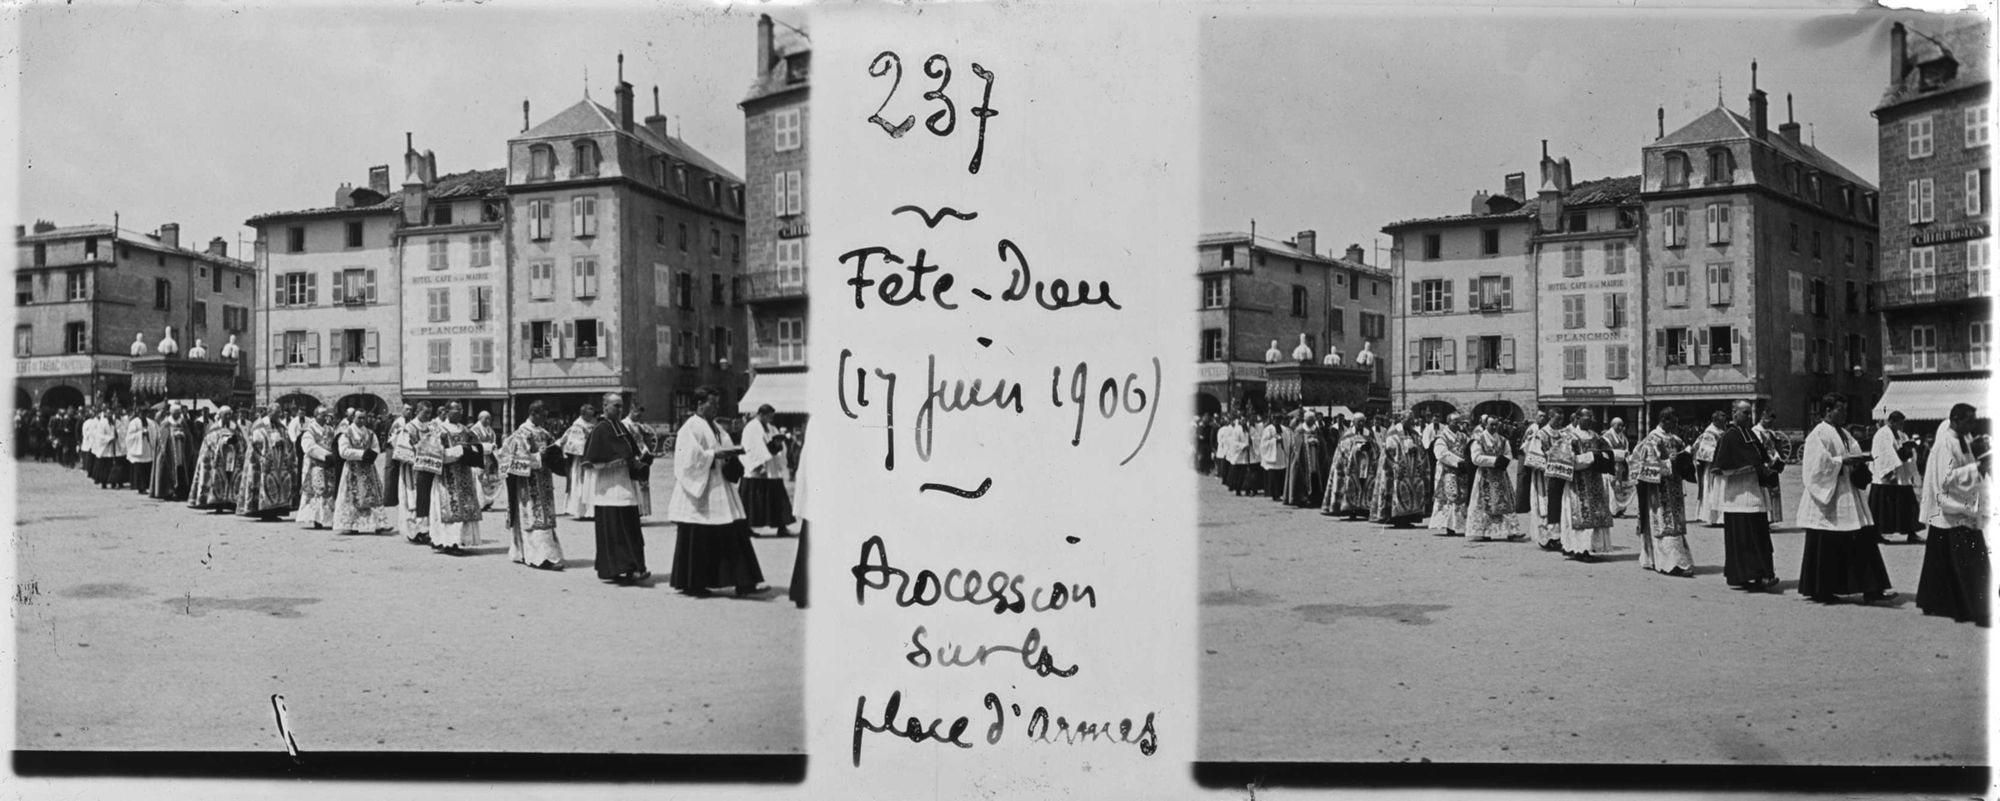 HOTEL CAFE DE LA MAIRIE
PLANCHON
CAFE
CAFE DU MARCHE
TABAC
237
Fête-Dieu
(17 juin 1906)
Procession
sur la
place d'armes
CHIRURGIEN
HOTEL CAFE DE LA MAIRIE
PLANCHON
CAFE
CAFE DU MARCHE